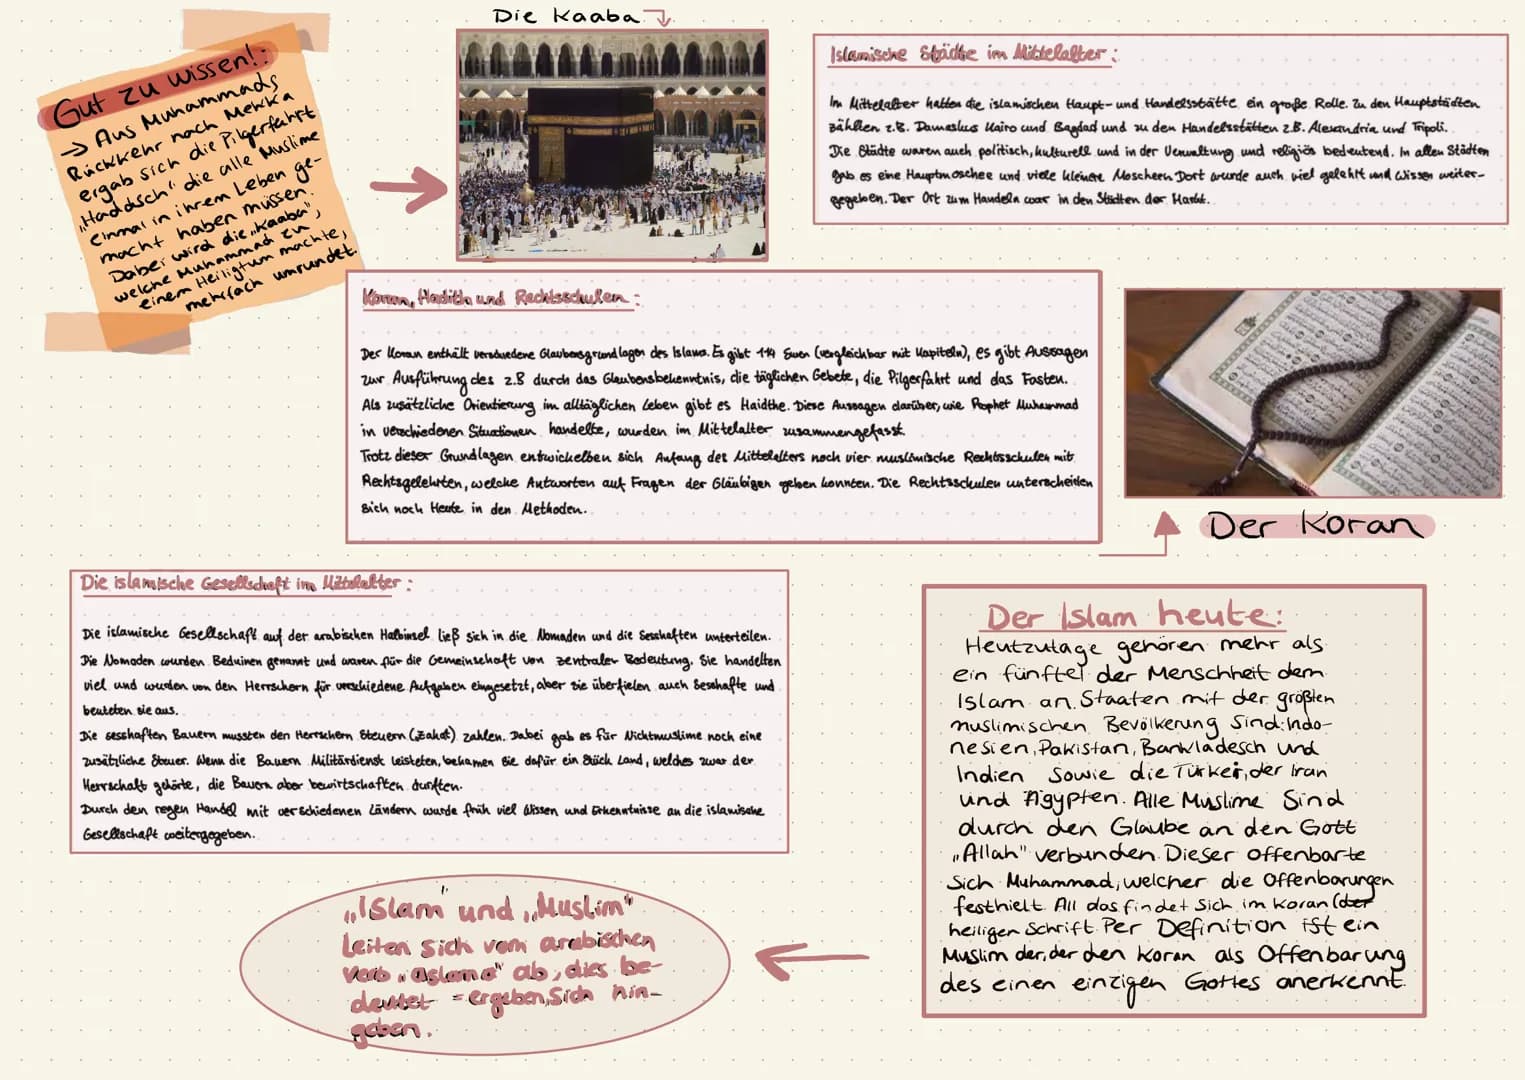 Gut zu wissen!:
→ Aus Muhammads
Rückkehr nach Mekka
ergab sich die Pilgerfahrt
„Haddsch" die alle Muslime
einmal in ihrem Leben ge-
macht haben müssen.
Dabei wird die „Kaaba",
welche Muhammad zu
einem Heiligtum machte,
mehrfach umrundet.
Die Kaaba
Islamische Städte im Mittelalter:
Im Mittelalter hatten die islamischen Haupt- und Handelsstätte ein große Rolle. Zu den Hauptstädten
zählten z.B. Damaskus Kairo und Bagdad und zu den Handelsstätten z.B. Alexandria und Tripoli.
Die Städte waren auch politisch, kulturell und in der Verwaltung und religiös bedeutend. In allen Städten
gab es eine Hauptmoschee und viele kleinere Moscheen. Dort wurde auch viel gelehrt und Wissen weiter-
gegeben. Der Ort zum Handeln war in den Städten der Markt.
Koran, Hadith und Rechtsschulen:
Der Koran enthält verschiedene Glaubensgrundlagen des Islams. Es gibt 114 Suren (vergleichbar mit Kapiteln), es gibt Aussagen
zur Ausführung des z.B durch das Glaubensbekenntnis, die täglichen Gebete, die Pilgerfahrt und das Fasten.
Als zusätzliche Orientierung im alltäglichen Leben gibt es Haidthe. Diese Aussagen darüber, wie Prophet Muhammad
in verschiedenen Situationen handelte, wurden im Mittelalter zusammengefasst.
Trotz dieser Grundlagen entwickelten sich Anfang des Mittelalters noch vier muslimische Rechtsschulen mit
Rechtsgelehrten, welche Antworten auf Fragen der Gläubigen geben konnten. Die Rechtsschulen unterscheiden
sich noch Heute in den Methoden.
Der Koran
Die islamische Gesellschaft im Mittelalter:
Die islamische Gesellschaft auf der arabischen Halbinsel ließ sich in die Nomaden und die Sesshaften unterteilen.
Die Nomaden wurden Beduinen genannt und waren für die Gemeinschaft von zentraler Bedeutung. Sie handelten
viel und wurden von den Herrschern für verschiedene Aufgaben eingesetzt, aber sie überfielen auch Sesshafte und
beuteten sie aus.
Die sesshaften Bauern mussten den Herrschern Steuern (Zakat) zahlen. Dabei gab es für Nichtmuslime noch eine
zusätzliche Steuer. Wenn die Bauern Militärdienst leisteten, bekamen sie dafür ein Stück Land, welches zwar der
Herrschaft gehörte, die Bauern aber bewirtschaften durften.
Durch den regen Handel mit verschiedenen Ländern wurde früh viel Wissen und Erkenntnisse an die islamische
Gesellschaft weitergegeben.
Der Islam heute:
Heutzutage gehören mehr als
ein fünftel der Menschheit dem
Islam an. Staaten mit der größten
muslimischen Bevölkerung sind: Indo-
nesien, Pakistan, Bankladesch und
Indien sowie die Türkei, der Iran
und Ägypten. Alle Muslime sind
durch den Glaube an den Gott
„Allah" verbunden. Dieser offenbarte
sich Muhammad, welcher die Offenbarungen
festhielt. All das findet sich im Koran (der
heiligen Schrift. Per Definition ist ein
Muslim der, der den Koran als Offenbarung
des einen einzigen Gottes anerkennt.
„Islam" und „Muslim"
Leiten sich vom arabischen
verb „aslama" ab, dies be-
deutet = ergeben, sich hin-
geben.